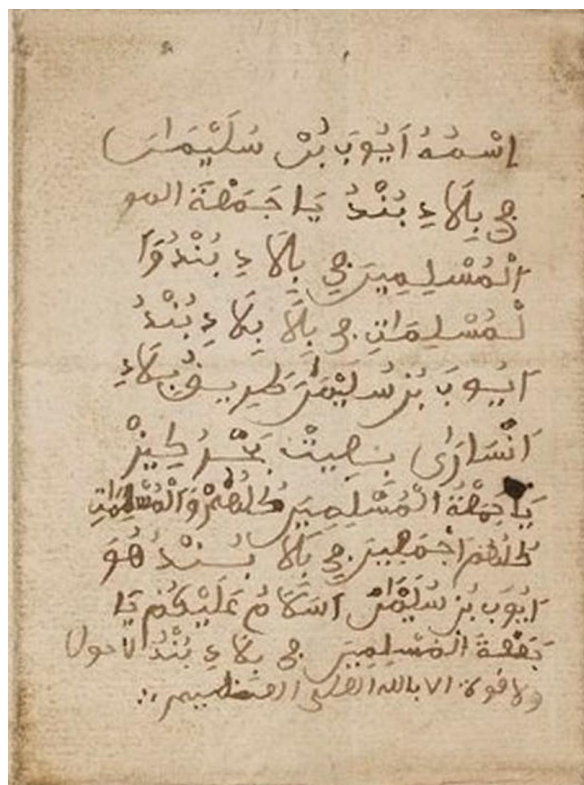 إِسْمُهُ اَيُوبَ بُنْ سُلَيْمَانَ
جِ بِلَاءِ بُنْدُ يَا جَمَعَةَ المو
اَلْمُسْلِمِينَ جِ بِلَاءِ بُنْدُ وَا
لْمُسْلِمَاتِ جِ بِلَا بِلَاءِ بُنْدُ
اَيُوبَ بُنْ سُلَيْمَانَ بِلَاءِ
اَنْسَارَىٰ
يَا جَمَعَةُ الْمُسْلِمِينَ كُلُهُمْ وَالْمُسْلِمَاتِ
كُلُهُمْ اَجْمَعِينَ جِ بِلَا بُنْدُ هُوَ
اَيُوبَ بُنْ سُلَيْمَانَ اَسَلَامُ عَلَيْكُمْ يَا
جَمَعَةَ الْمُسْلِمِينَ جِ بِلَاءِ بُنْدُ لاحول
ولا قوة الا بالله العلي العظيم